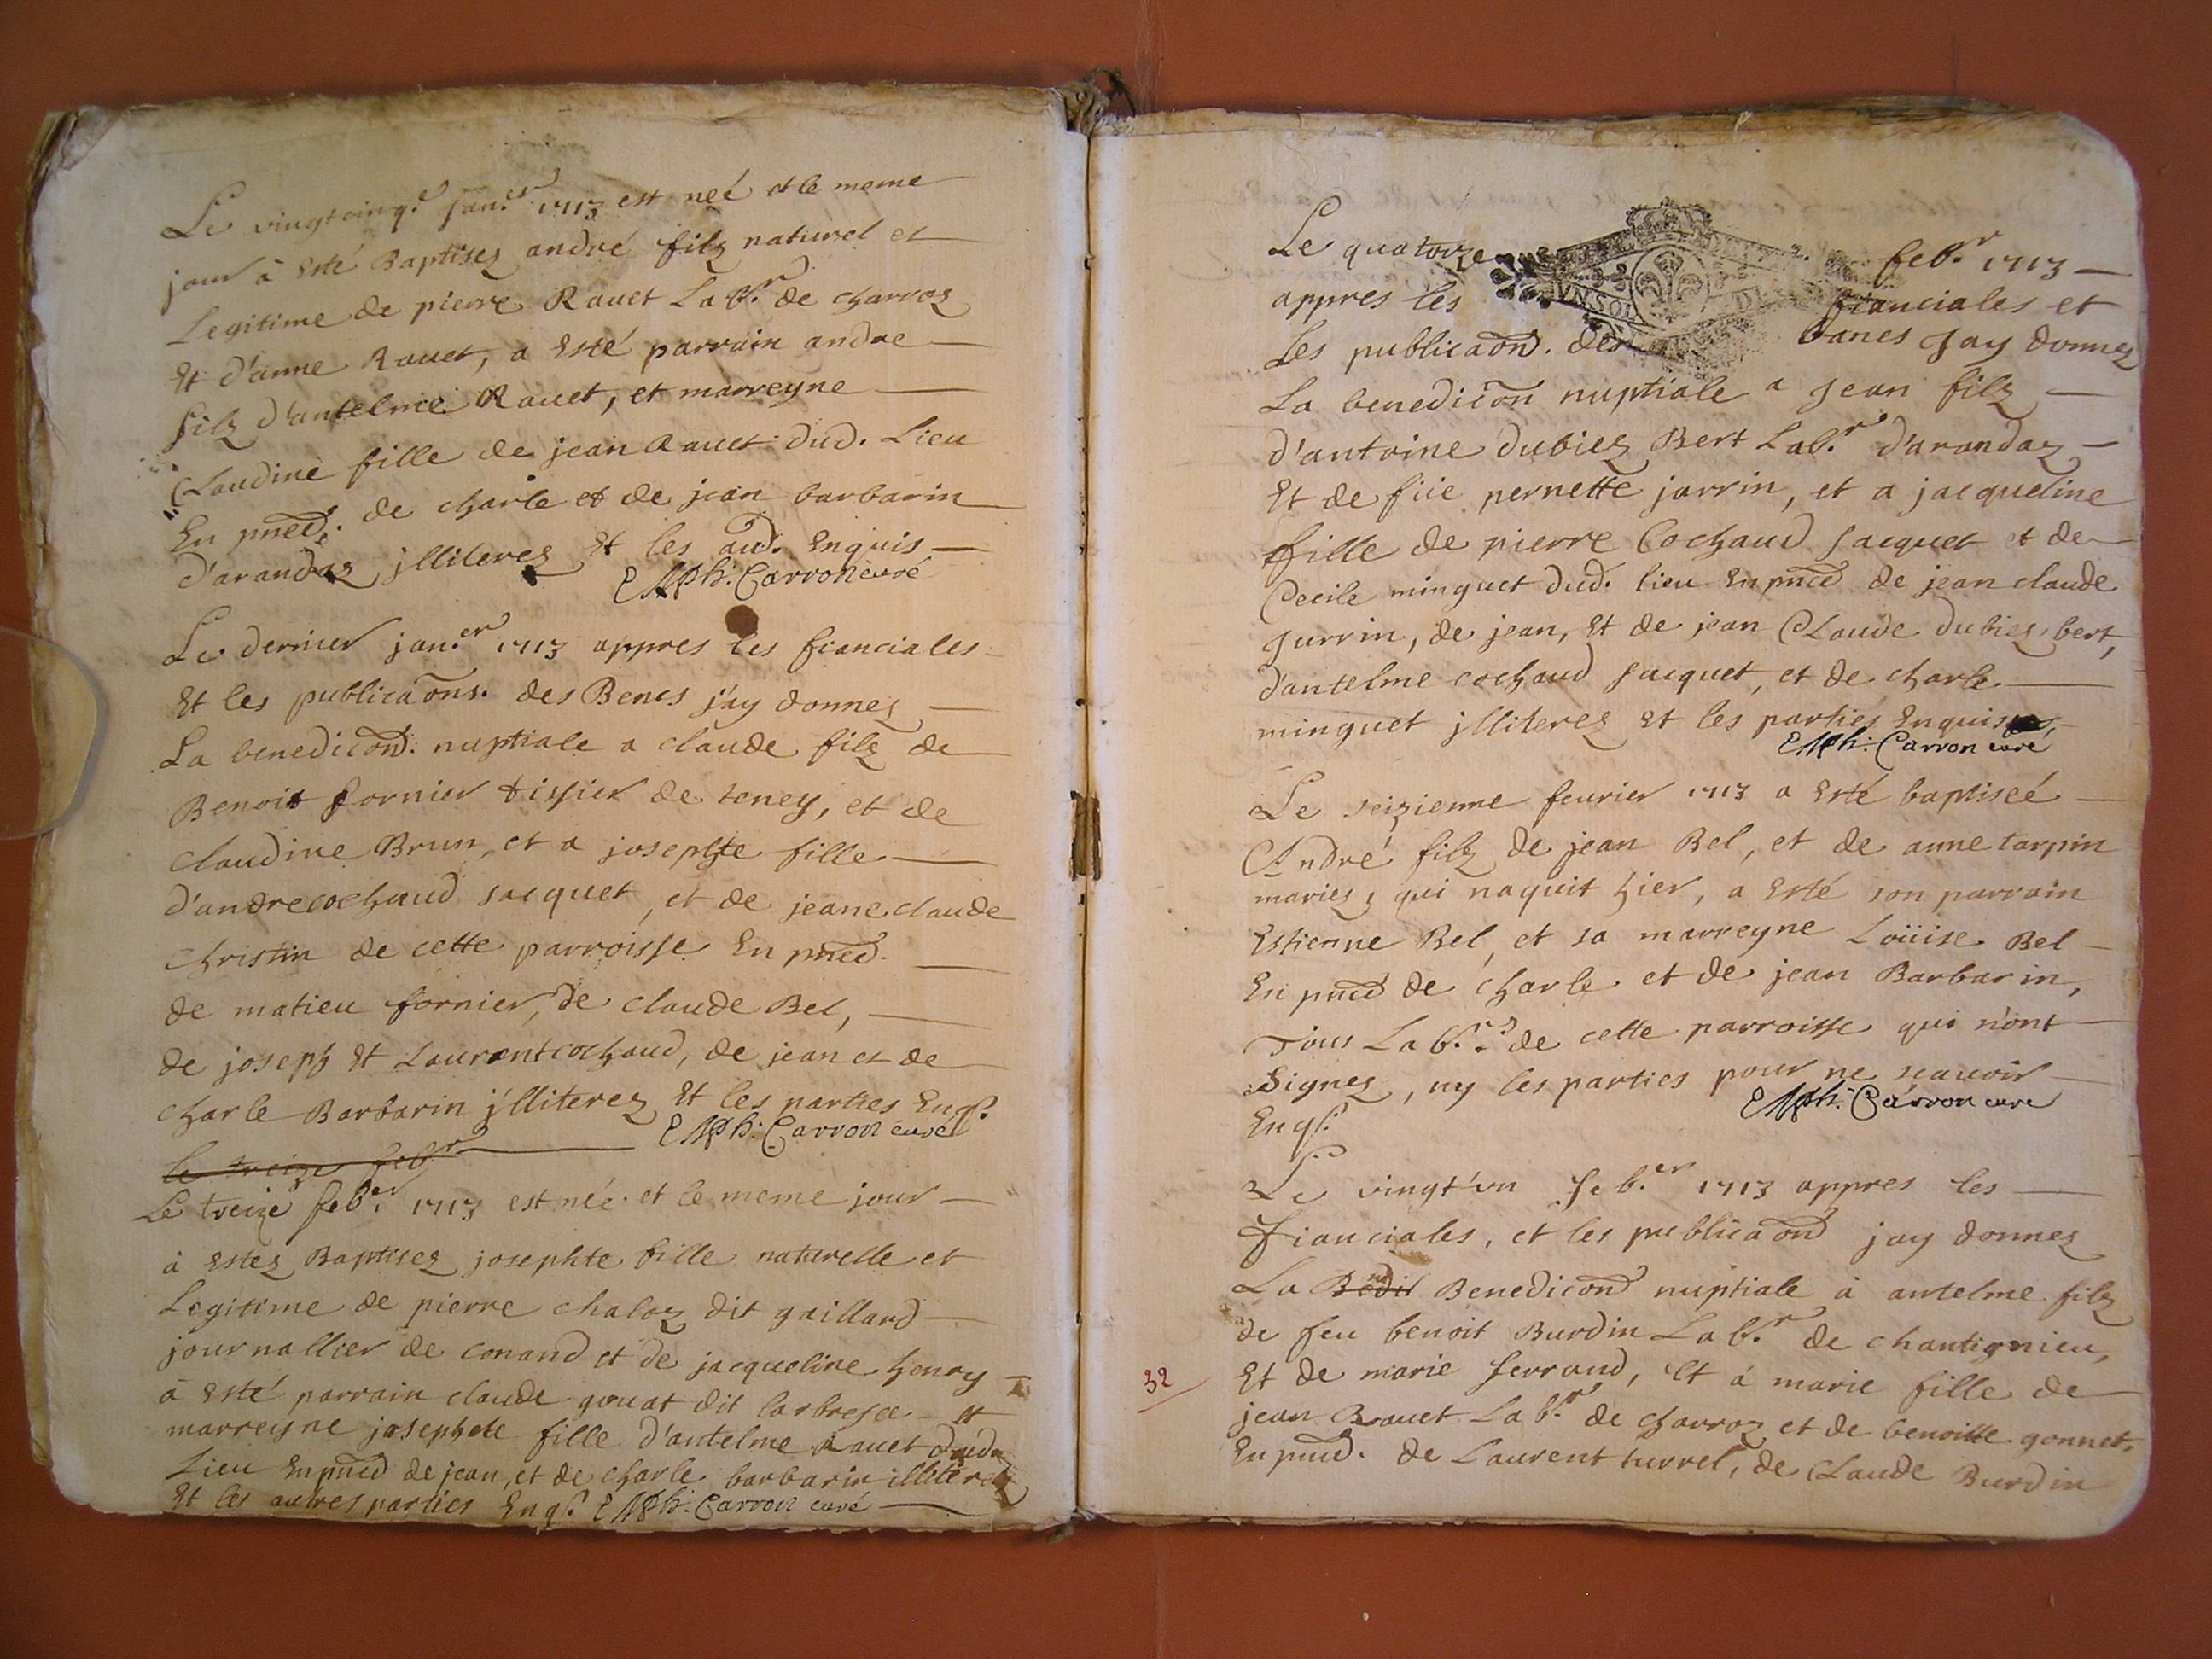 Le vingtcinq.e Jan.er 1713 est neé et le meme
jour à esté Baptisez andré filz naturel et
Legitime de pierre Rauet Lab.r de charvoz
Et d'anne Rauet, a Esté parrain andre
filz d'antelme Rauet, et marreyne
Claudine fille de jean Rauet dud. Lieu
En pnced. de charle et de jean barbarin
d'arandaz jlliterez Et les aud. Enquis
Carron curé
Le dernier jan.er 1713 appres les fianciales
Et les publicaons. des Bencs j'ay donnez
La benedicond. nuptiale a claude filz de
Benoit fornier tissier de teney, et de
Claudine Brun, et a josephte fille
d'andre cochaud Jacquet, et de jeane claude
Christin de cette parroisse En pnced.
de matieu fornier, de claude Bel,
de joseph Et Laurent cochaud, de jean et de
charle Barbarin jlliterez Et les parties Enq.s
Carron curé
le treize feb.r
Le treize feb.er 1713 est néé et le meme jour
à Estez Baptisez josephte fille naturelle et
Legitime de pierre chaloz dit gaillard
journallier de conand et de jacqueline henry
à Esté parrain claude gouat dit larbresle et
marreyne josephete fille d'antelme Rauet dud.
Lieu En pnced de jean, et de charle barbarin illiterez
Et les autres parties Enq.s Carron curé
Le quatorze feb.r 1713
appres les fianciales et
Les publicaond. des bancs Jay donnez
La benedicion nuptiale a Jean filz
d'antoine dubiez Bert Lab.r d'arandaz
Et de fiie pernette jarrin, et a jacqueline
fille de pierre Cochaud Jacquet et de
Cecile minguet dud. lieu En pnced de jean claude
Jurrin, de jean, Et de jean Claude dubiez bert,
d'antelme cochaud Jacquet, et de charle
minguet jlliterez Et les parties Enquises
Carron curé
Le seizienne feurier 1713 a Esté baptiseé
André filz de jean Bel, et de anne tarpin
mariez, qui naquit hier, a Esté son parrain
Estienne Bel, et sa marreyne Loüise Bel
En pnced de charle et de jean Barbarin,
Tous Lab.rs de cette parroisse qui n'ont
Signez, ny les parties pour ne scauoir
Enq.s Carron curé
Le vingt'vn feb.er 1713 appres les
fianciales, et les publicaond jay donnez
La Bedit Benedicond nuptiale à antelme filz
de feu benoit Burdin Lab.r de chantignieu,
32
Et de marie ferrand, Et à marie fille de
jean Rauet Lab.r de charvoz et de benoitte gonnet.
En pnced. de Laurent turrel, de Claude Burdin